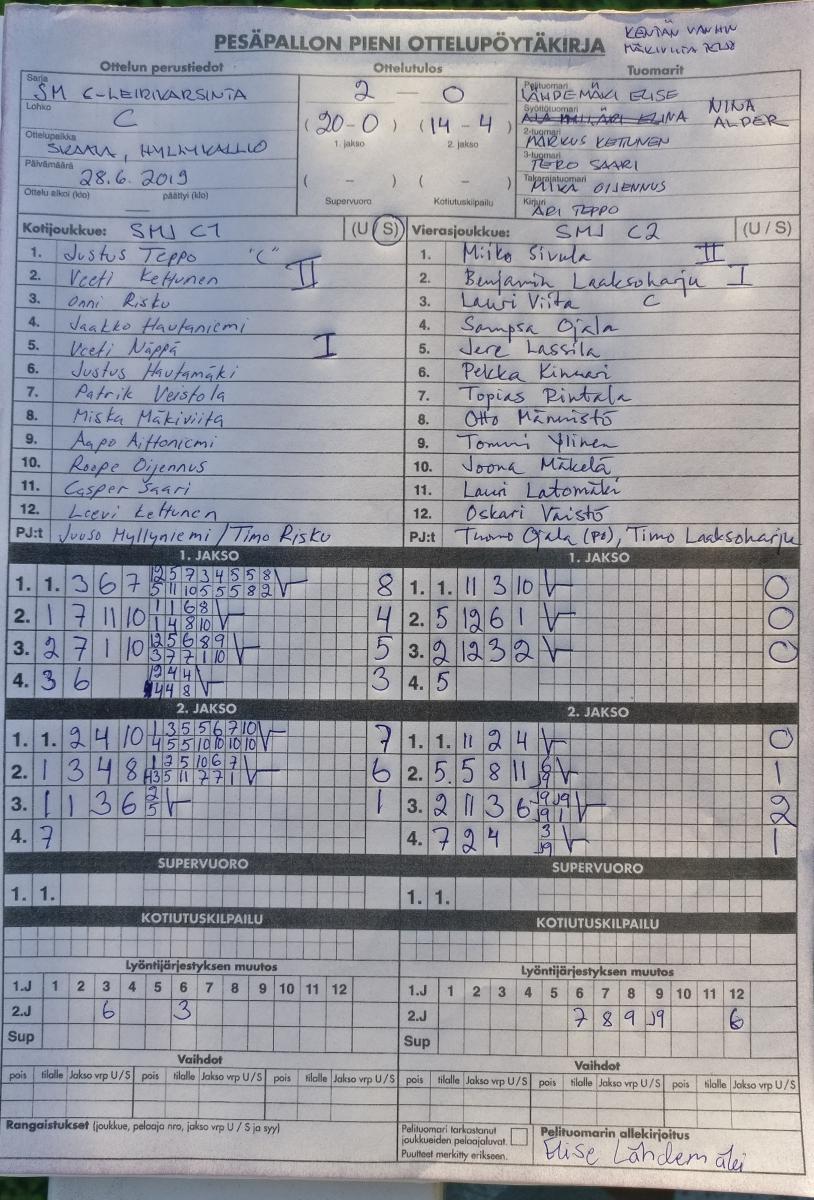 KENTÄN VANHIN
PESÄPALLON PIENI OTTELUPÖYTÄKIRJA
Ottelun perustiedot Ottelutulos Tuomarit
Sarja
SM C-LEIRIKARSINTA 2 — 0
Pelituomari
LÄHDEMÄKI ELISE
Lohko
C
Syöttötuomari
NINA ALDER
(20-0) (14-4)
1. jakso 2. jakso
Ottelupaikka
HYLLYKALLIO
2-tuomari
MARKUS KETTUNEN
Päivämäärä
28.6.2019
3-tuomari
TERO SAARI
( - ) ( - )
Takarajatuomari
MIKA OIJENNUS
Ottelu alkoi (klo) — päättyi (klo)
Supervuoro Kotiutuskilpailu
Kirjuri
ARI TEPPO
Kotijoukkue: SMJ C1 (U/S) Vierasjoukkue: SMJ C2 (U/S)
1. Justus Teppo "C" 1. Miiko Sivula II
2. Veeti Kettunen II 2. Benjamin Laaksoharju I
3. Onni Risku 3. Lauri Viita C
4. Jaakko Hautaniemi 4. Sampsa Ojala
5. Veeti Näppä I 5. Jere Lassila
6. Justus Hautamäki 6. Pekka Kinnari
7. Patrik Veistola 7. Topias Rintala
8. Miska Mäkiviita 8. Otto Männistö
9. Aapo Aittoniemi 9. Tommi Ylinen
10. Roope Oijennus 10. Joona Mäkelä
11. Casper Saari 11. Lauri Latomäki
12. Leevi Kettunen 12. Oskari Väistö
PJ:t Juuso Hyllyniemi / Timo Risku PJ:t Thomo Ojala (PO), Timo Laaksoharju
1. JAKSO 1. JAKSO
1. 1. 3 6 7 12 5 7 3 4 5 5 8 8 1. 1. 11 3 10 0
5 11 10 5 5 5 8 2
2. 1 7 11 10 1 1 6 8 4 2. 5 12 6 1 0
1 4 8 10
3. 2 7 1 10 12 5 6 8 9 5 3. 2 12 3 2 0
3 7 7 1 10
4. 3 6 12 4 4 3 4. 5
4 4 8
2. JAKSO 2. JAKSO
1. 1. 2 4 10 1 3 5 5 6 7 10 7 1. 1. 11 2 4 0
4 5 5 10 10 10 10
2. 1 3 4 8 1 2 5 10 6 7 6 2. 5. 5 8 11 6 1
3 5 11 7 7 1 J9
3. 1 1 3 6 2 1 3. 2 11 3 6 J9 J9 2
5 J9 1
4. 7 4. 7 2 4 3 1
J9
SUPERVUORO SUPERVUORO
1. 1. 1. 1.
KOTIUTUSKILPAILU KOTIUTUSKILPAILU
Lyöntijärjestyksen muutos Lyöntijärjestyksen muutos
1.J 1 2 3 4 5 6 7 8 9 10 11 12 1.J 1 2 3 4 5 6 7 8 9 10 11 12
2.J 6 3 2.J 7 8 9 J9 6
Sup Sup
Vaihdot Vaihdot
pois tilalle Jakso vrp U/S pois tilalle Jakso vrp U/S pois tilalle Jakso vrp U/S pois tilalle Jakso vrp U/S pois tilalle Jakso vrp U/S pois tilalle Jakso vrp U/S
Rangaistukset (joukkue, pelaaja nro, jakso vrp U / S ja syy)
Pelituomari tarkastanut
joukkueiden pelaajaluvat.
Puutteet merkitty erikseen.
Pelituomarin allekirjoitus
Elise Lähdemäki